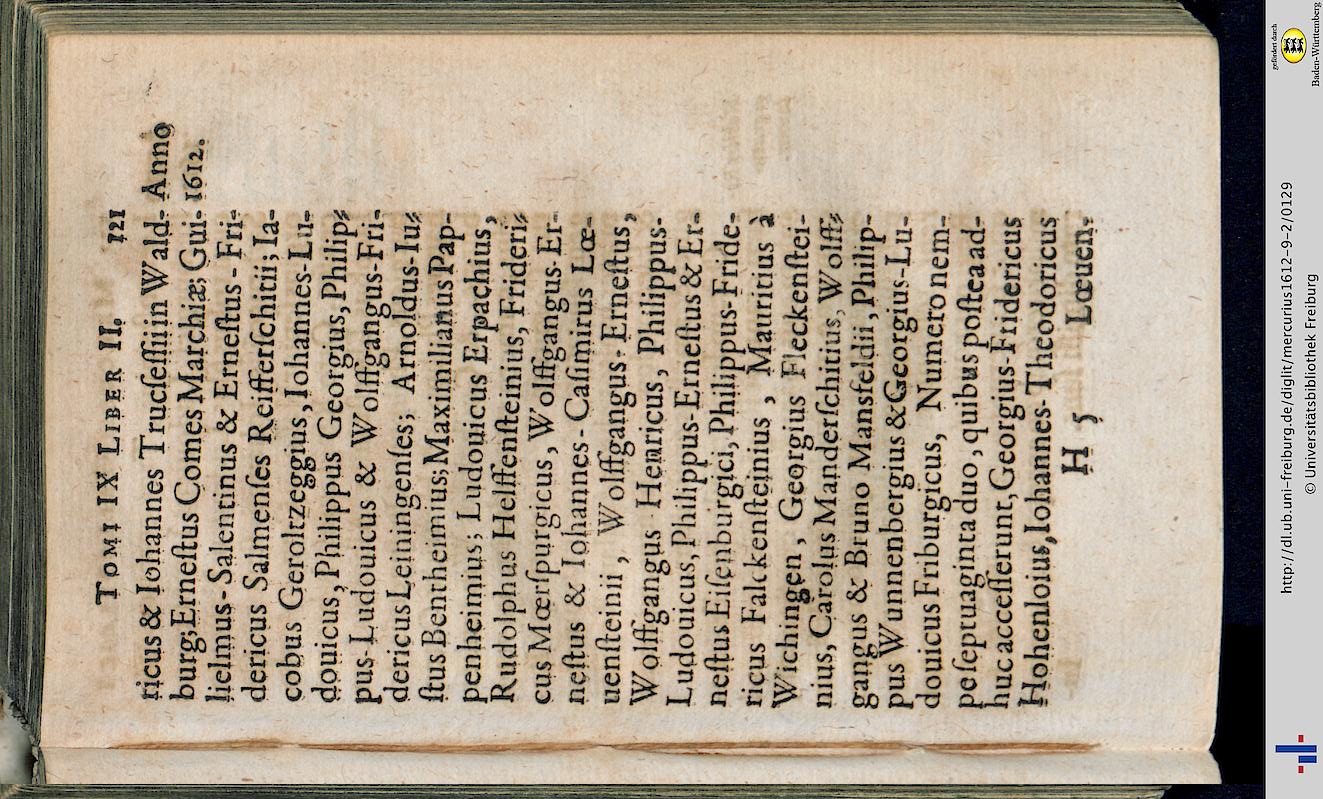 TOMI IX LIBER II. 121
ricus & Iohannes Trucſeſſii in Wald- Anno
burg; Erneſtus Comes Marchiæ; Gui- 1612.
lielmus-Salentinus & Erneſtus-Fri-
dericus Salmenſes Reifferſchitii; Ia-
cobus Geroltzeggius, Iohannes-Lu-
douicus, Philippus Georgius, Philip-
pus-Ludouicus & Wolffgangus-Fri-
dericus Leiningenſes; Arnoldus-Iu-
ſtus Bentheimius; Maximilianus Pap-
penheimius; Ludouicus Erpachius,
Rudolphus Helffenſteinius, Frideri-
cus Mœrſpurgicus, Wolffgangus-Er-
neſtus & Iohannes-Caſimirus Lœ-
uenſteinii, Wolffgangus-Erneſtus,
Wolffgangus Henricus, Philippus-
Ludouicus, Philippus-Erneſtus & Er-
neſtus Eiſenburgici, Philippus-Fride-
ricus Falckenſteinius, Mauritius à
Wichingen, Georgius Fleckenſtei-
nius, Carolus Manderſchitius, Wolff-
gangus & Bruno Mansfeldii, Philip-
pus Wunnenbergius & Georgius-Lu-
douicus Friburgicus, Numero nem-
pe ſeptuaginta duo, quibus poſtea ad-
huc acceſſerunt, Georgius-Fridericus
Hohenloius, Iohannes-Theodoricus
H 5 Lœuen-
http://dl.ub.uni-freiburg.de/diglit/mercurius1612-9-2/0129
© Universitätsbibliothek Freiburg
gefördert durch
Baden-Württemberg